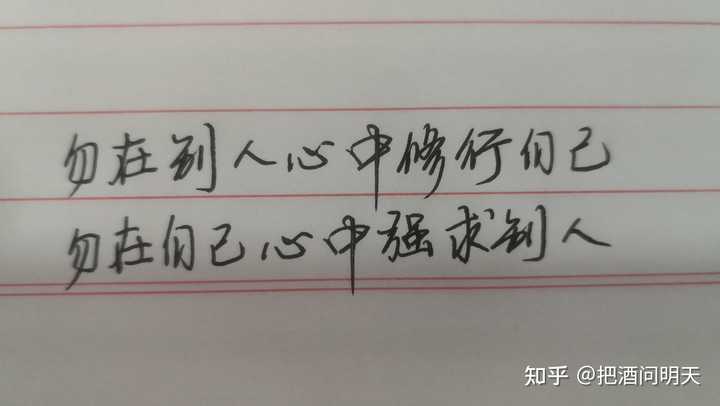 勿在别人心中修行自己
勿在自己心中强求别人
知乎 @把酒问明天